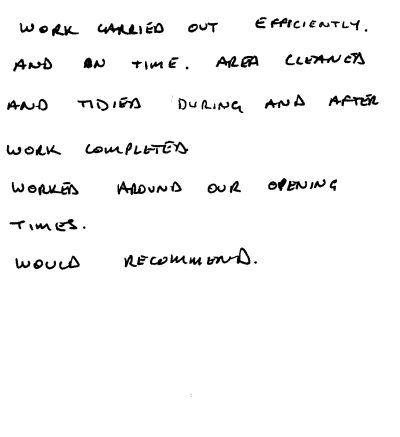 WORK CARRIED OUT EFFICIENTLY.
AND ON TIME. AREA CLEANED
AND TIDIED DURING AND AFTER
WORK COMPLETED
WORKED AROUND OUR OPENING
TIMES.
WOULD RECOMMEND.